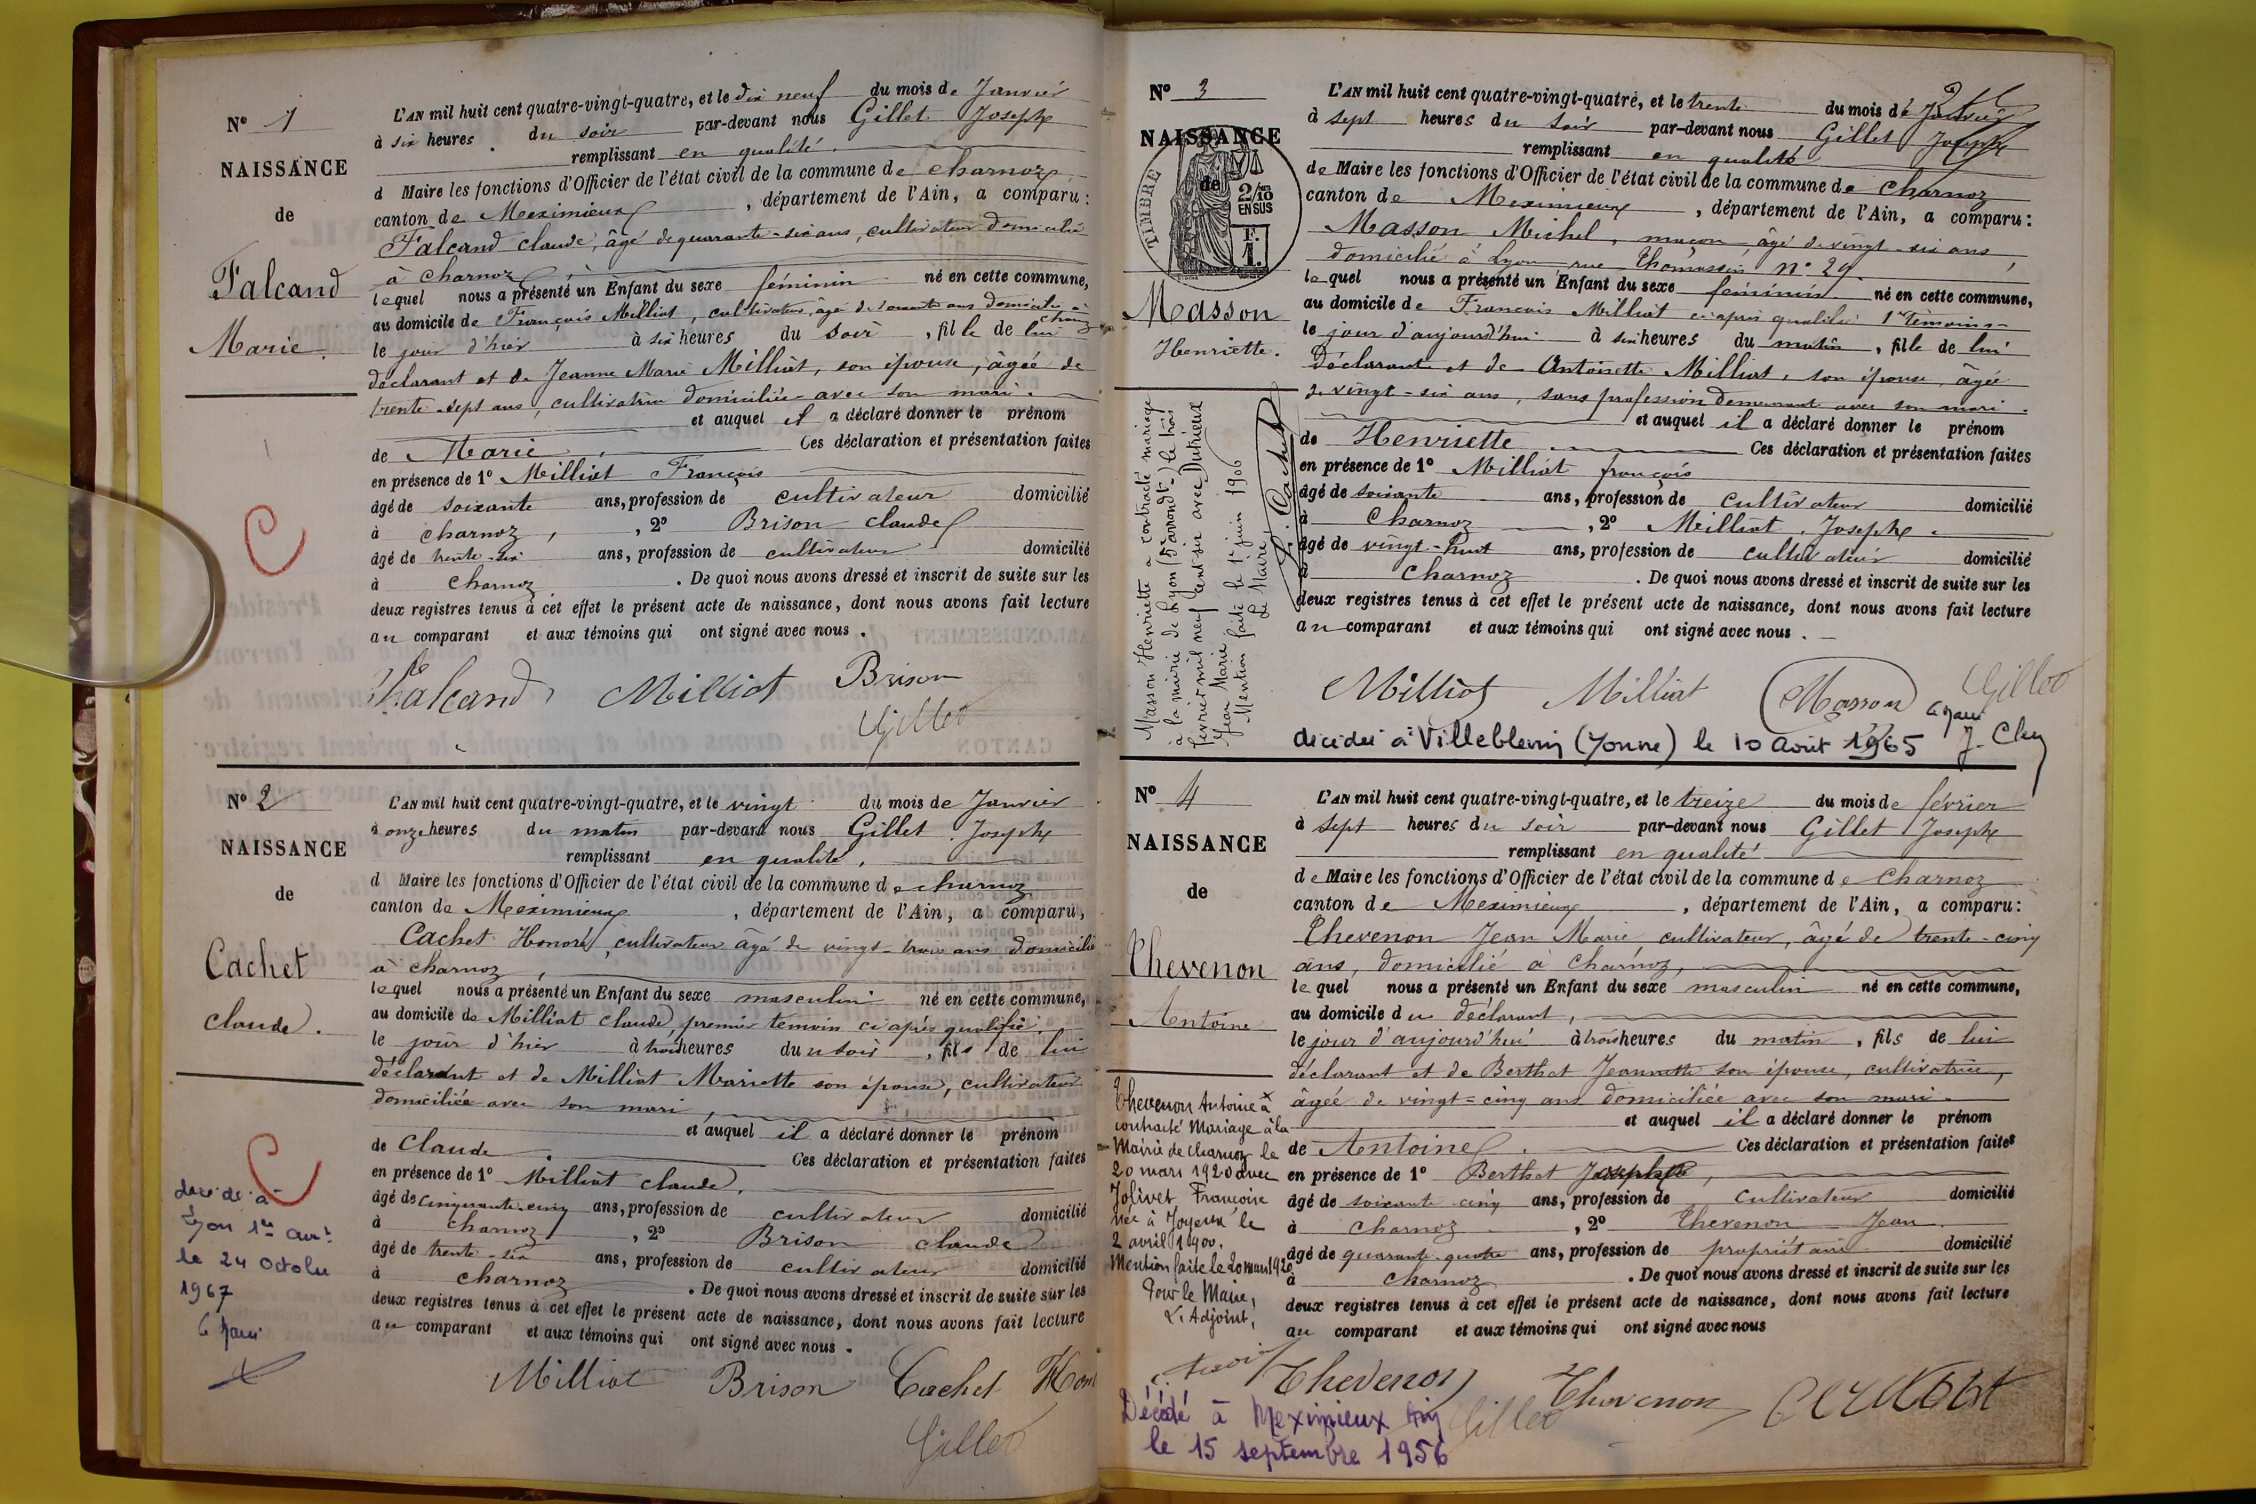 N° 1
NAISSANCE
de
Falcand
Marie.
L'AN mil huit cent quatre-vingt-quatre, et le dix neuf du mois de Janvier
à six heures du soir par-devant nous Gillet Joseph
remplissant en qualité
d Maire les fonctions d'Officier de l'état civil de la commune de Charnoz
canton de Meximieux, département de l'Ain, a comparu:
Falcand claude, âgé de quarante-six ans, cultivateur domicilié
à charnoz,
lequel nous a présenté un Enfant du sexe féminin né en cette commune,
au domicile de François Milliat, cultivateur, âgé de soixante ans domicilié à charnoz
le jour d'hier à six heures du soir, fille de lui
déclarant et de Jeanne Marie Milliat, son épouse, âgée de
trente-sept ans, cultivatrice domiciliée avec son mari.
et auquel il a déclaré donner le prénom
de Marie. Ces déclaration et présentation faites
en présence de 1° Milliat François
âgé de soixante ans, profession de cultivateur domicilié
à charnoz, 2° Brison claude
âgé de trente-six ans, profession de cultivateur domicilié
à charnoz. De quoi nous avons dressé et inscrit de suite sur les
deux registres tenus à cet effet le présent acte de naissance, dont nous avons fait lecture
au comparant et aux témoins qui ont signé avec nous.
Falcand Milliat Brison
Gillet
N° 2
NAISSANCE
de
Cachet
claude.
décédé à
Lyon 1er arrt
le 24 Octobre
1967
L'AN mil huit cent quatre-vingt-quatre, et le vingt du mois de Janvier
à onze heures du matin par-devant nous Gillet Joseph
remplissant en qualité.
d Maire les fonctions d'Officier de l'état civil de la commune de charnoz
canton de Meximieux, département de l'Ain, a comparu,
Cachet Honoré, cultivateur âgé de vingt-trois ans domicilié
à charnoz,
lequel nous a présenté un Enfant du sexe masculin né en cette commune,
au domicile de Milliat claude, premier témoin ci après qualifié.
le jour d'hier à trois heures du soir, fils de lui
déclarant et de Milliat Mariette son épouse, cultivateur
domiciliée avec son mari,
et auquel il a déclaré donner le prénom
de Claude. Ces déclaration et présentation faites
en présence de 1° Milliat claude,
âgé de cinquante-cinq ans, profession de cultivateur domicilié
à charnoz, 2° Brison claude
âgé de trente-six ans, profession de cultivateur domicilié
à charnoz. De quoi nous avons dressé et inscrit de suite sur les
deux registres tenus à cet effet le présent acte de naissance, dont nous avons fait lecture
au comparant et aux témoins qui ont signé avec nous.
Milliat Brison Cachet
Gillet
N° 3
NAISSANCE
de
TIMBRE
2/10
EN SUS
F.
1.
Masson
Henriette.
Masson Henriette a contracté mariage
à la mairie de Lyon le trois
février mil neuf cent six avec Dutrieux
Jean Marie
Mention faite le 1er juin 1906
Le Maire
L'AN mil huit cent quatre-vingt-quatre, et le trente du mois de Janvier
à sept heures du soir par-devant nous Gillet Joseph
remplissant en qualité
de Maire les fonctions d'Officier de l'état civil de la commune de Charnoz
canton de Meximieux, département de l'Ain, a comparu:
Masson Michel, maçon, âgé de vingt-six ans,
domicilié à Lyon rue Thomassin n° 29
lequel nous a présenté un Enfant du sexe féminin né en cette commune,
au domicile de François Milliat ci après qualifié 1er Témoins-
le jour d'aujourd'hui à six heures du matin, fille de lui
Déclarant et de Antoinette Milliat, son épouse, âgée
de vingt-six ans, sans profession demeurant avec son mari.
et auquel il a déclaré donner le prénom
de Henriette Ces déclaration et présentation faites
en présence de 1° Milliat françois
âgé de soixante ans, profession de cultivateur domicilié
à Charnoz, 2° Milliat, Joseph.
âgé de vingt-huit ans, profession de cultivateur domicilié
à Charnoz. De quoi nous avons dressé et inscrit de suite sur les
deux registres tenus à cet effet le présent acte de naissance, dont nous avons fait lecture
au comparant et aux témoins qui ont signé avec nous.
Milliat Milliat Masson Gillet
décédée à Villeblevin (Yonne) le 10 Août 1965
N° 4
NAISSANCE
de
Thevenon
Antoine
Thevenon Antoine a
contracté Mariage à la
Mairie de charnoz le
20 mars 1920 avec
Jolivet Françoise
née à Joyeux le
2 avril 1900.
Mention faite le 20 mars 1920
Pour le Maire,
L'Adjoint,
L'AN mil huit cent quatre-vingt-quatre, et le treize du mois de février
à sept heures du soir par-devant nous Gillet Joseph
remplissant en qualité
de Maire les fonctions d'Officier de l'état civil de la commune de Charnoz
canton de Meximieux, département de l'Ain, a comparu:
Thevenon Jean Marie cultivateur, âgé de trente-cinq
ans, domicilié à Charnoz,
lequel nous a présenté un Enfant du sexe masculin né en cette commune,
au domicile du déclarant,
le jour d'aujourd'hui à trois heures du matin, fils de lui
déclarant et de Berthet Jeannette son épouse, cultivatrice,
âgée de vingt=cinq ans domiciliée avec son mari.
et auquel il a déclaré donner le prénom
de Antoine. Ces déclaration et présentation faites
en présence de 1° Berthet Joseph,
âgé de soixante-cinq ans, profession de cultivateur domicilié
à Charnoz, 2° Thevenon Jean.
âgé de quarante-quatre ans, profession de propriétaire domicilié
à Charnoz. De quoi nous avons dressé et inscrit de suite sur les
deux registres tenus à cet effet le présent acte de naissance, dont nous avons fait lecture
au comparant et aux témoins qui ont signé avec nous
Thevenon Thevenon
Gillet
Décédé à Meximieux Ain
le 15 septembre 1956